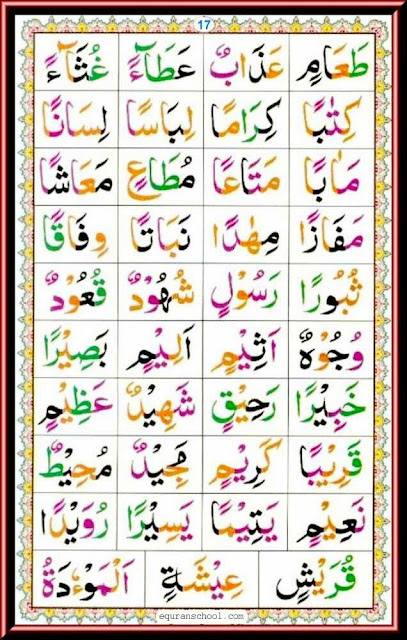 17
طَعَامٍ عَذَابٌ عَطَآءً غُثَآءً
كِتٰبًا كِرَامًا لِبَاسًا لِسَانًا
مَاٰبًا مَتَاعًا مُطَاعٍ مَعَاشًا
مَفَازًا مِهٰدًا نَبَاتًا وِفَاقًا
ثُبُورًا رَسُوْلٍ شُهُوْدٌ قُعُوْدٌ
وُجُوْهٌ اَثِيْمٍ اَلِيْمٍ بَصِيْرًا
خَبِيْرًا رَحِيْقٍ شَهِيْدٌ عَظِيْمٍ
قَرِيْبًا كَرِيْمٍ مَجِيْدٌ مُحِيْطٌ
نَعِيْمٍ يَتِيْمًا يَسِيْرًا رُوَيْدًا
قُرَيْشٍ عِيْشَةٍ اَلْمَوْءٗدَةُ
equranschool.com